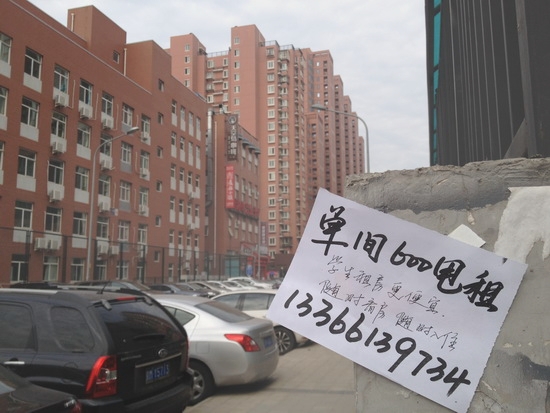 单间600甩租
学生租房更便宜.
随时看房 随时入住
13366139734